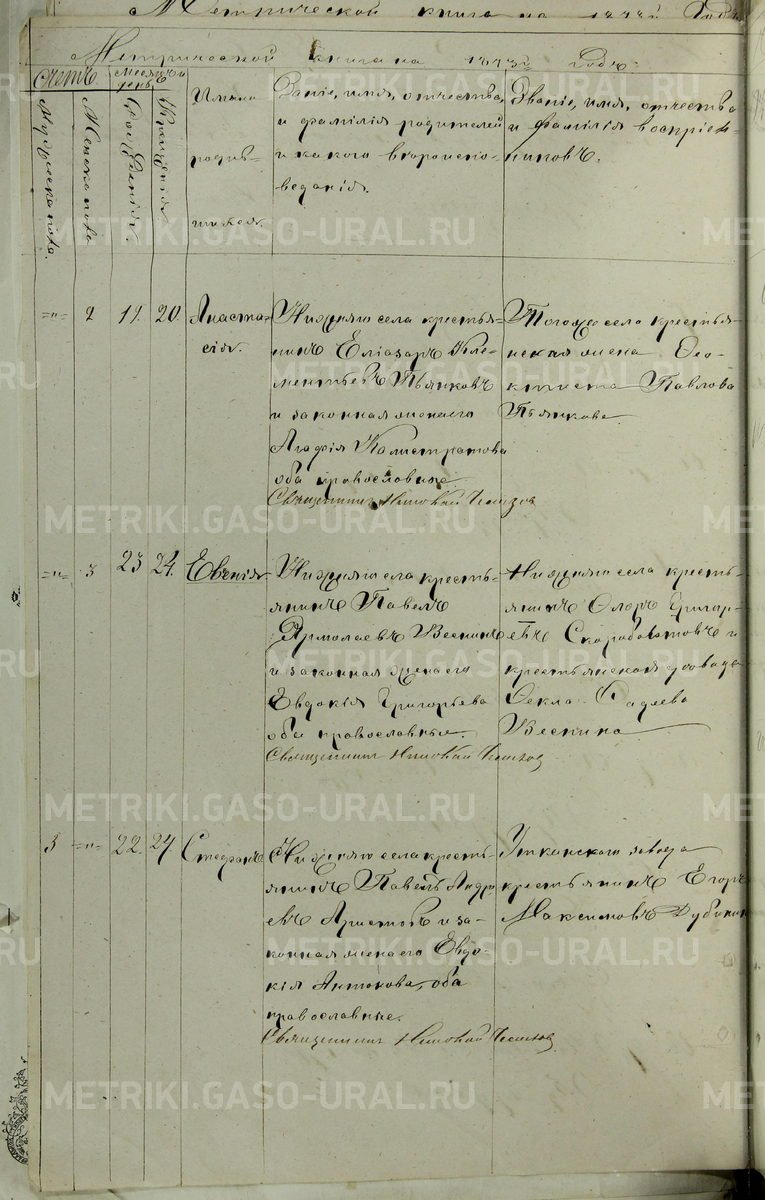 Метрической книга на 187 годъ
Метрической книга на 1873й годъ.
Счетъ
Мужескаго пола.
Женскаго пола
Месяцъ и день
Рожденія.
Крещенія
Имена
родив-
шихся.
Званіе, имя, отчество,
и фамилія родителей
и какого вероиспо-
веданія.
Званіе, имя, отчество
и фамилія воспріем-
никовъ.
="= 2 19. 20.
Анаста-
сія.
Нижняго села крестья-
нинъ Еліазаръ Кле-
ментьевъ Пьянковъ
и законная жена его
Агафія Калистратова
оба православные
Священникъ Николай
Тогоже села крестья-
нская жена Ѳео-
ктиста Павлова
Пьянкова
="= 3 23 24.
Евгенія
Нижняго села кресть-
янинъ Павелъ
Ярмолаевъ Веснинъ
и законная жена его
Евдокія Григорьева
оба православные.
Священникъ Николай
Нижняго села кресть-
янинъ Флоръ Григорь-
евъ и
крестьянская вдова
Ѳекла Фадеева
Веснина
3 ="= 22. 24.
Стефанъ
Нижняго села кресть-
янинъ Павелъ Андре
евъ Аристовъ и за-
конная жена его Евдо-
кія Антонова, оба
православные.
Священникъ Николай
Уткинскаго завода
крестьянинъ Егоръ
Максимовъ Дубинин
METRIKI.GASO-URAL.RU